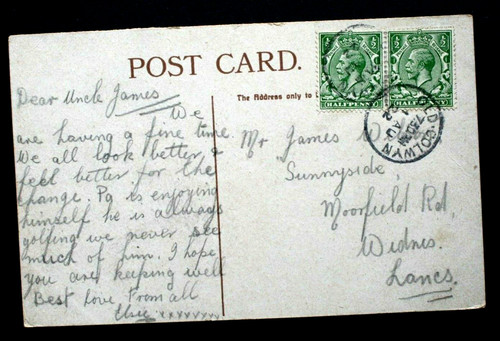 POST CARD.
The Address only to
HALFPENNY
HALFPENNY
COLWYN
Dear Uncle James
We
are having a fine time
We all look better &
feel better for the
change. Pa is enjoying
himself he is allways
golfing we never see
much of him. I hope
you are keeping well
Best love from all
xxxxxxxx
Mr James
Sunnyside,
Moorfield Rd,
Widnes.
Lancs.